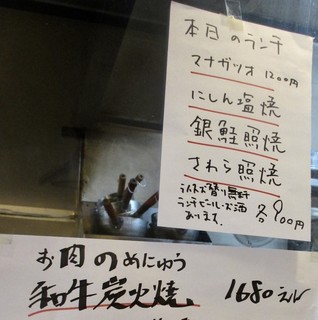 本日のランチ
マナガツオ 1200円
にしん塩焼
銀鮭照焼
さわら照焼
ライス大盛り無料
ランチビール・お酒
あります。
各900円
お肉のめにゅう
和牛炭火焼 1680